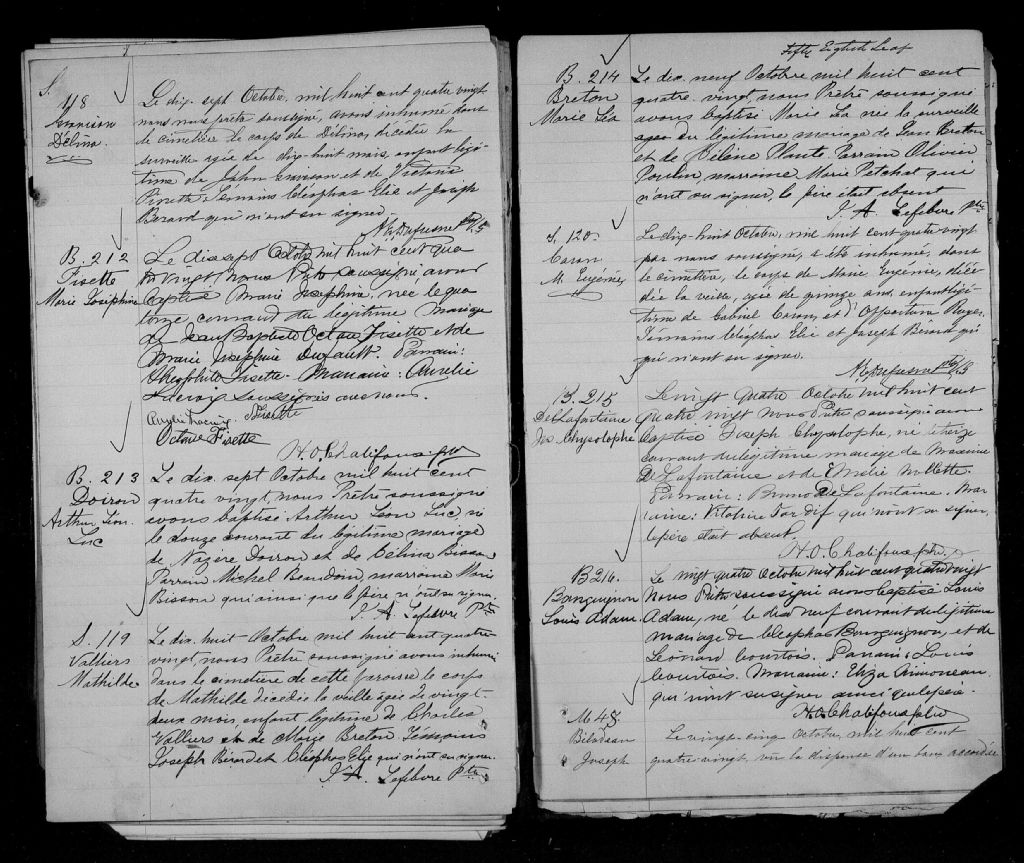 S. 118
Délina
Le dix sept Octobre mil huit cent quatre vingt
nous prêtre soussigné, avons inhumé dans
le cimetière le corps de Délina, décédée la
surveille agée de dix-huit mois, enfant légi-
time de John et de Victoria
Témoins Cléophas Elie et Joseph
Berard qui n'ont su signer.
B. 212
Fisette
Marie Joséphine
Le dix sept Octobre mil huit cent qua
tre vingt Nous Prêtre soussigné avons
baptisé Marie Josephine, née le qua
torze courant du légitime mariage
de Jean Baptiste Octave Fisette et de
Marie Josephine Dufault. Parrain:
Théophile Fisette. Marraine: Aurélie
soussignés avec nous.
Octave Fisette
H. O. Chalifoux ptre
B. 213
Doiron
Arthur Léon
Luc
Le dix sept Octobre mil huit cent
quatre vingt, nous Prêtre soussigné
avons baptisé Arthur Léon Luc, né
le douze courant du légitime mariage
de Nazère Doiron et de Célina Bisson
Parrain Michel Beaudoin, marraine Marie
Bisson qui ainsi que le père n'ont su signer.
J. A. Lefebvre Ptre
S. 119
Valliers
Mathilde
Le dix huit Octobre mil huit cent quatre
vingt, nous Prêtre soussigné avons inhumé
dans le cimetière de cette paroisse le corps
de Mathilde décédée la veille agée de vingt-
deux mois, enfant légitime de Charles
Valliers et de Marie Breton Témoins
Joseph Bérard et Cléophas Elie qui n'ont su signer.
J. A. Lefebvre Ptre
Fifty Eighth Leaf
B. 214
Breton
Marie Léa
Le dix neuf Octobre mil huit cent
quatre vingt nous Prêtre soussigné
avons baptisé Marie Léa née la surveille
du légitime mariage de Jean Breton
et de Hélène Plante. Parrain Olivier
Poulin, marraine Marie Petchat qui
n'ont su signer, le père était absent
J. A. Lefebvre Ptre
S. 120
Caron
M. Eugénie
Le dix-huit Octobre, mil huit cent quatre vingt
par nous soussigné, a été inhumé, dans
le cimetière, le corps de Marie Eugenie, décé-
dée la veille, agée de quinze ans, enfant légi-
time de Gabriel Caron, et d'
Témoins Cléophas Elie et Joseph Berard qui
qui n'ont su signer.
B. 215
De Lafontaine
Jos Chysolophe
Le vingt quatre Octobre mil huit cent
quatre vingt Nous Prêtre soussigné avons
baptisé Joseph Chysolophe, né le treize
courant du légitime mariage de Maxime
De Lafontaine et de Emélie Nollette.
Parrain: Bruno De Lafontaine. Mar
raine: Victoire qui n'ont su signer,
le père était absent.
H. O. Chalifoux ptre
B 216.
Bourguignon
Louis Adam.
Le vingt quatre Octobre mil huit cent quatre vingt
Nous Prêtre soussigné avons baptisé Louis
Adam, né le dix neuf courant du légitime
mariage de Cléophas Bourguignon, et de
Léonard Courtois. Parrain: Louis
Courtois. Marraine: Eliza
qui n'ont su signer ainsi que le père.
H. O. Chalifoux ptre
M 48.
Bilodeau
Joseph
Le vingt-cinq Octobre, mil huit cent
quatre vingt, vu la dispense d'un ban accordée